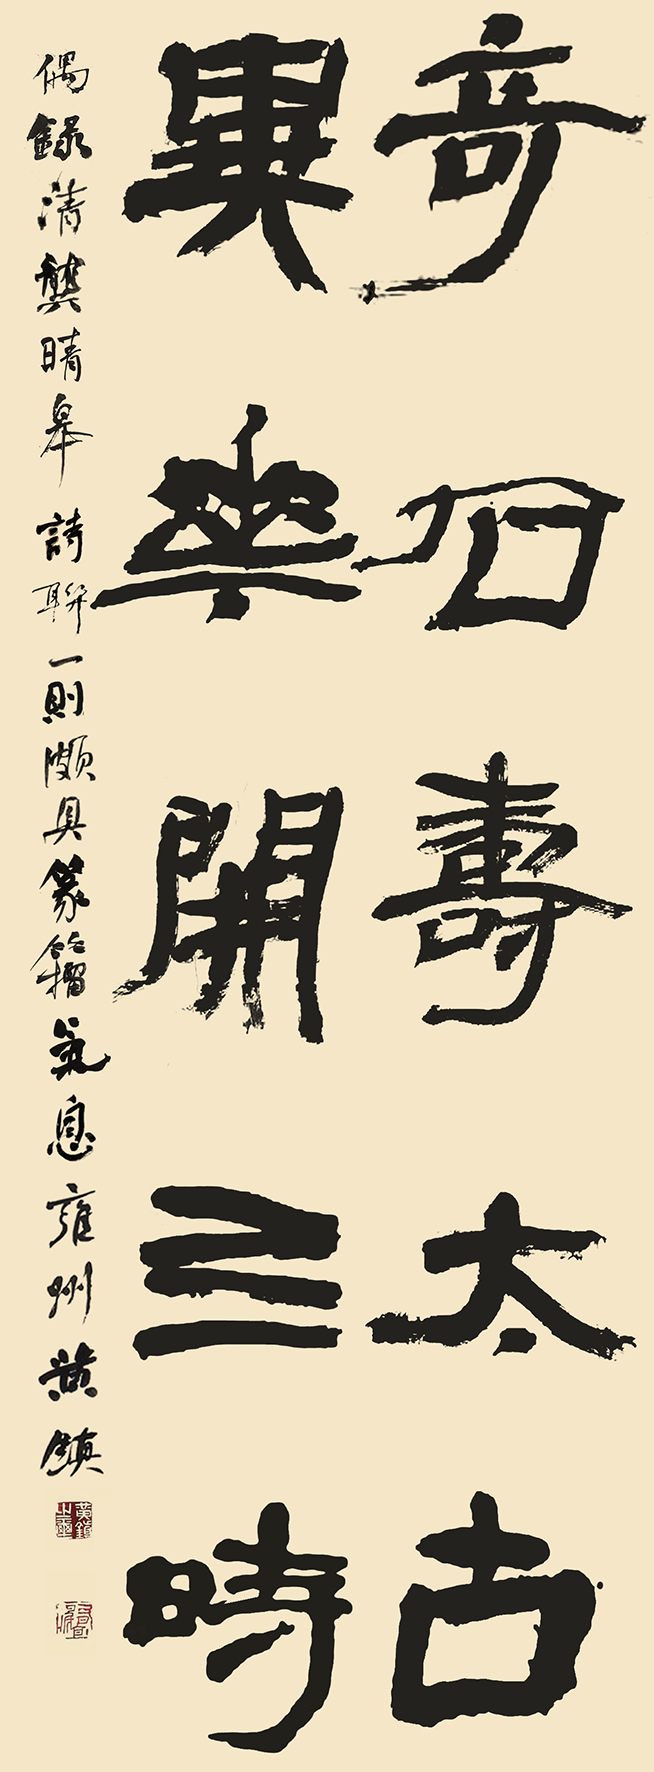 奇石壽太古
異華開亖時
偶錄清龔晴皋詩聯一則頗具篆籀氣息雍州黄鎮